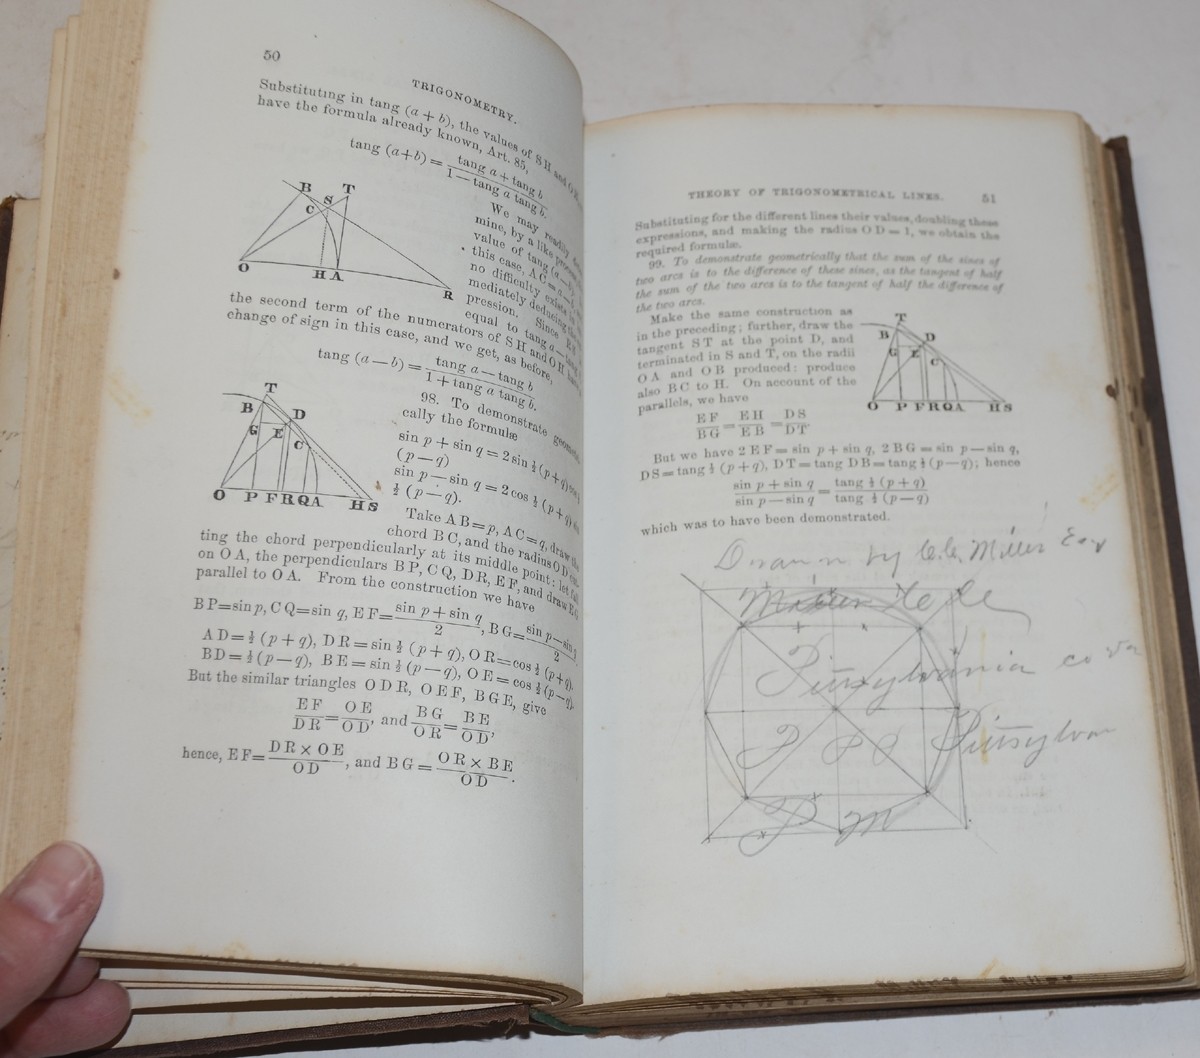 50
TRIGONOMETRY.
Substituting in tang (a + b), the values of S H and O H,
have the formula already known, Art. 85,
tang (a+b) = tang a + tang b / 1 — tang a tang b.
We may readily
mine, by a like process
value of tang (a — b).
this case, A C = a —
no difficulty exists
mediately deducing
pression. Since
equal to tang a — tang
B S T C O H A R
the second term of the numerators of S H and O H
change of sign in this case, and we get, as before,
tang (a — b) = tang a — tang b / 1 + tang a tang b.
98. To demonstrate
cally the formulæ
sin p + sin q = 2 sin ½ (p + q)
(p — q)
sin p — sin q = 2 cos ½ (p + q)
½ (p — q).
Take A B = p, A C = q, draw the
chord B C, and the radius O D
T B D G E C O P F R Q A H S
ting the chord perpendicularly at its middle point; let fall
on O A, the perpendiculars B P, C Q, D R, E F, and draw
parallel to O A. From the construction we have
B P = sin p, C Q = sin q, E F = sin p + sin q / 2, B G = sin p — sin q / 2
A D = ½ (p + q), D R = sin ½ (p + q), O R = cos ½ (p + q).
B D = ½ (p — q), B E = sin ½ (p — q), O E = cos ½ (p — q).
But the similar triangles O D R, O E F, B G E, give
E F / D R = O E / O D, and B G / O R = B E / O D,
hence, E F = D R × O E / O D, and B G = O R × B E / O D.
THEORY OF TRIGONOMETRICAL LINES. 51
Substituting for the different lines their values, doubling these
expressions, and making the radius O D = 1, we obtain the
required formulæ.
99. To demonstrate geometrically that the sum of the sines of
two arcs is to the difference of these sines, as the tangent of half
the sum of the two arcs is to the tangent of half the difference of
the two arcs.
Make the same construction as
in the preceding; further, draw the
tangent S T at the point D, and
terminated in S and T, on the radii
O A and O B produced: produce
also B C to H. On account of the
parallels, we have
T B D G E C O P F R Q A H S
E F / B G = E H / E B = D S / D T.
But we have 2 E F = sin p + sin q, 2 B G = sin p — sin q,
D S = tang ½ (p + q), D T = tang D B = tang ½ (p — q); hence
sin p + sin q / sin p — sin q = tang ½ (p + q) / tang ½ (p — q)
which was to have been demonstrated.
Drawn by C. C. Miller Esq
Pittsylvania co Va
Pittsylvan
P m